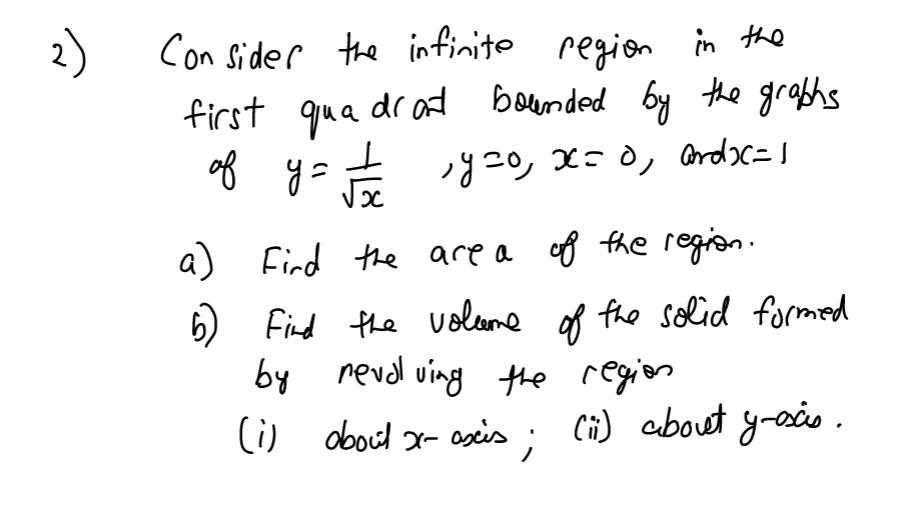 2) Consider the infinite region in the
first quadrant bounded by the graphs
of y = 1/√x , y=0, x= 0, and x=1
a) Find the area of the region.
b) Find the volume of the solid formed
by revolving the region
(i) about x-axis ; (ii) about y-axis .